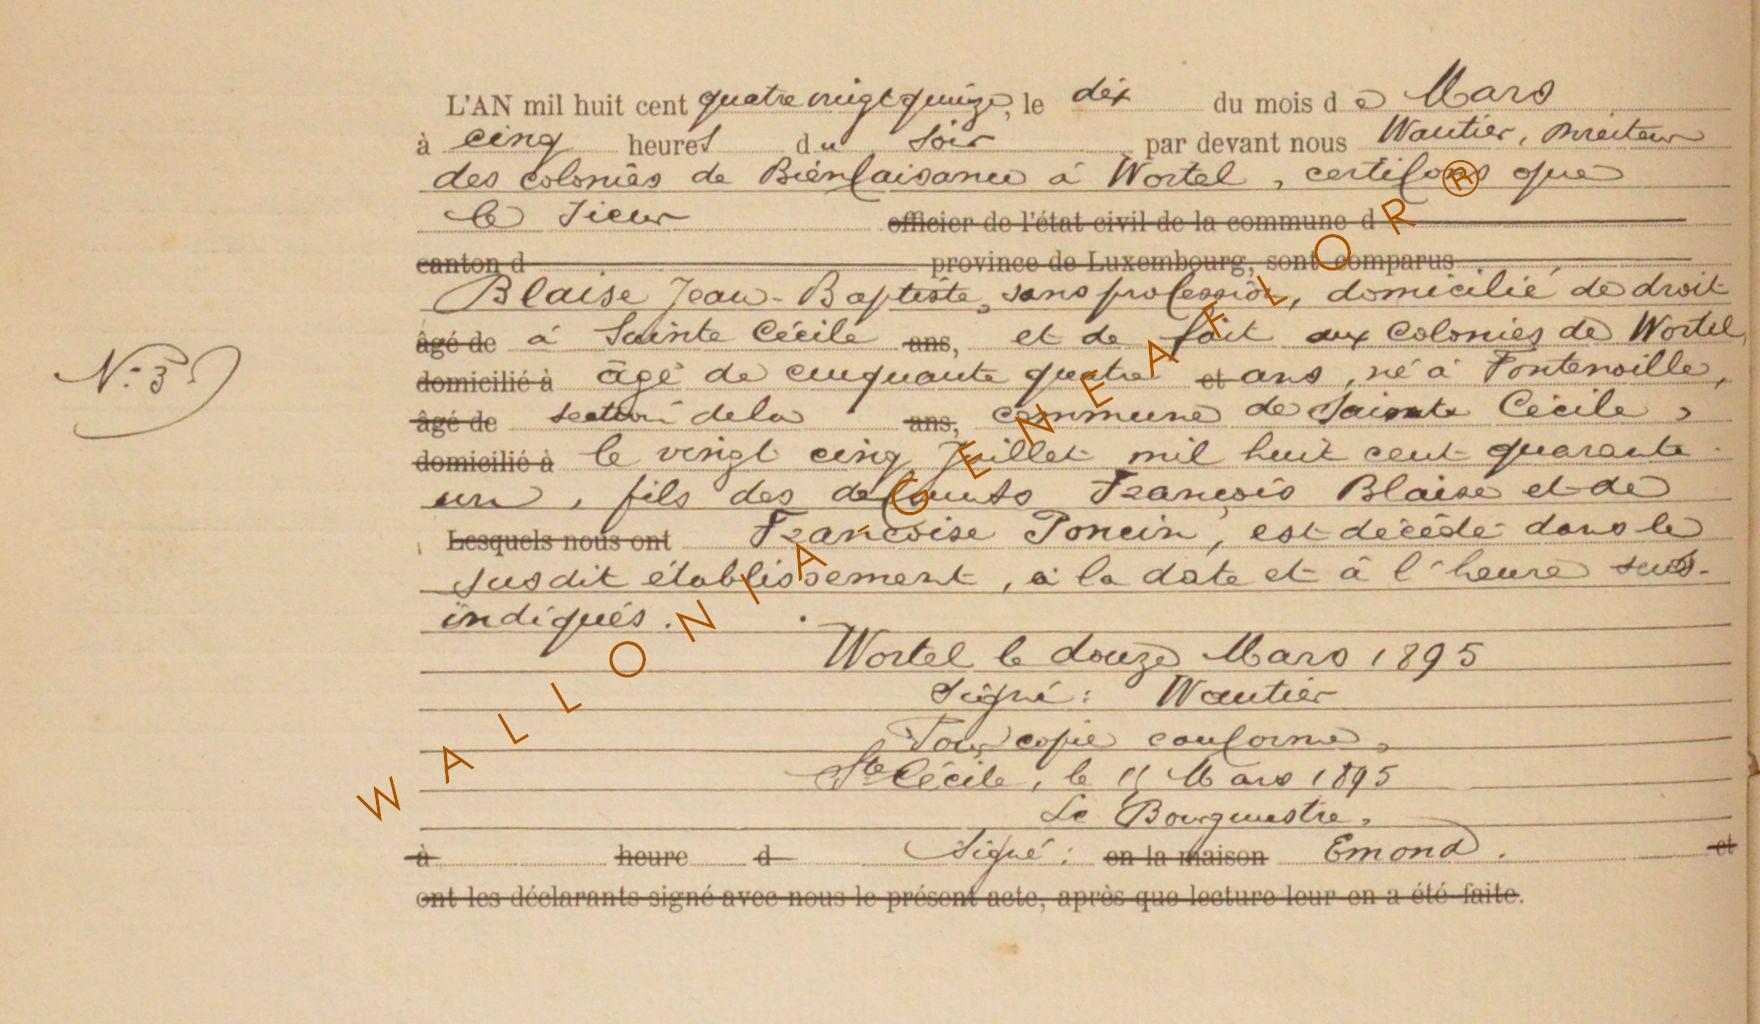 L'AN mil huit cent quatre vingt quinze, le dix du mois d e Mars
à cinq heures du soir par devant nous Wautier, Directeur
des colonies de Bienfaisance à Wortel, certifions que
le sieur officier de l'état civil de la commune d
canton d province de Luxembourg, sont comparus
Blaise Jean-Baptiste, sans profession, domicilié de droit
âgé de à Sainte Cécile ans, et de fait aux Colonies de Wortel,
domicilié à âgé de cinquante quatre et ans, né à Fontenoille,
âgé de section de la ans, commune de Sainte Cécile,
domicilié à le vingt cinq Juillet mil huit cent quarante
un, fils des defunts François Blaise et de
N: 3.
Lesquels nous ont Françoise Poncin, est décédé dans le
susdit établissement, à la date et à l'heure sus-
indiqués.
Wortel le douze Mars 1895
Signé: Wautier
Pour copie conforme,
Ste Cécile, le Mars 1895
Le Bourgmestre,
à heure d Signé: en la maison Emond. et
ont les déclarants signé avec nous le présent acte, après que lecture leur en a été faite.
WALLONIA GENEAFLOR ®